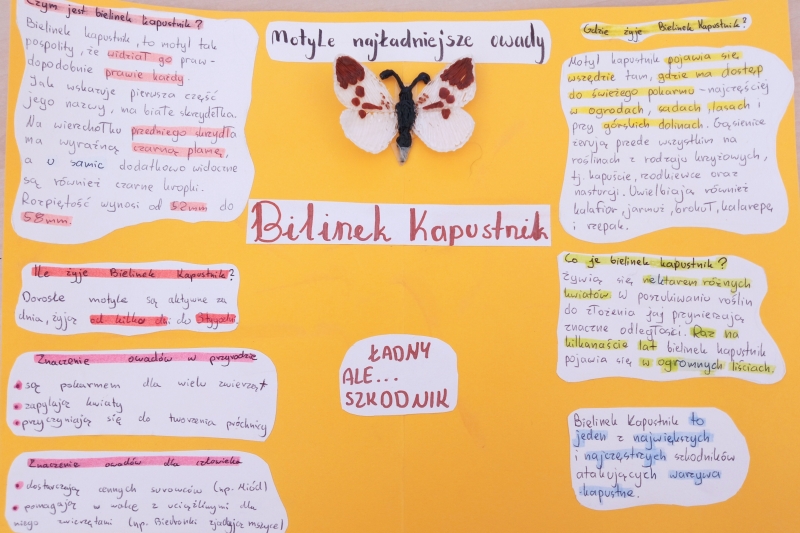 Czym jest bielinek kapustnik?
Bielinek kapustnik, to motyl tak
pospolity, że widział go praw-
dopodobnie prawie każdy
Jak wskazuje pierwsza część
jego nazwy, ma białe skrzydełka.
Na wierzchołku przedniego skrzydła
ma wyraźną czarną plamę,
a u samic dodatkowo widoczne
są również czarne kropki.
Rozpiętość wynosi od 52mm do
58mm.
Ile żyje Bielinek Kapustnik?
Dorosłe motyle są aktywne za
dnia, żyją od kilku dni do 3tygodni
Znaczenie owadów w przyrodzie
są pokarmem dla wielu zwierząt
zapylają kwiaty
przyczyniają się do tworzenia próchnicy
Znaczenie owadów dla człowieka
dostarczają cennych surowców (np. Miód)
pomagają w walce z uciążliwymi dla
niego zwierzętami (np. Biedronki zjadają mszyce)
Motyle najładniejsze owady
Bilinek Kapustnik
ŁADNY
ALE...
SZKODNIK
Gdzie żyje Bielinek Kapustnik?
Motyl kapustnik pojawia się
wszędzie tam, gdzie ma dostęp
do świeżego pokarmu - najczęściej
w ogrodach, sadach, lasach i
przy górskich dolinach. Gąsienice
żerują przede wszystkim na
roślinach z rodzaju krzyżowych,
tj. kapuście, rzodkiewce oraz
nasturcji. Uwielbiają również
kalafior, jarmuż, brokuł, kalarepę
i rzepak.
Co je bielinek kapustnik?
Żywią się nektarem różnych
kwiatów. W poszukiwaniu roślin
do złożenia jaj
znaczne odległości. Raz na
kilkanaście lat bielinek kapustnik
pojawia się w ogromnych liściach.
Bielinek Kapustnik to
jeden z największych
i najczęstrzych szkodników
atakujących warzywa
kapustne.